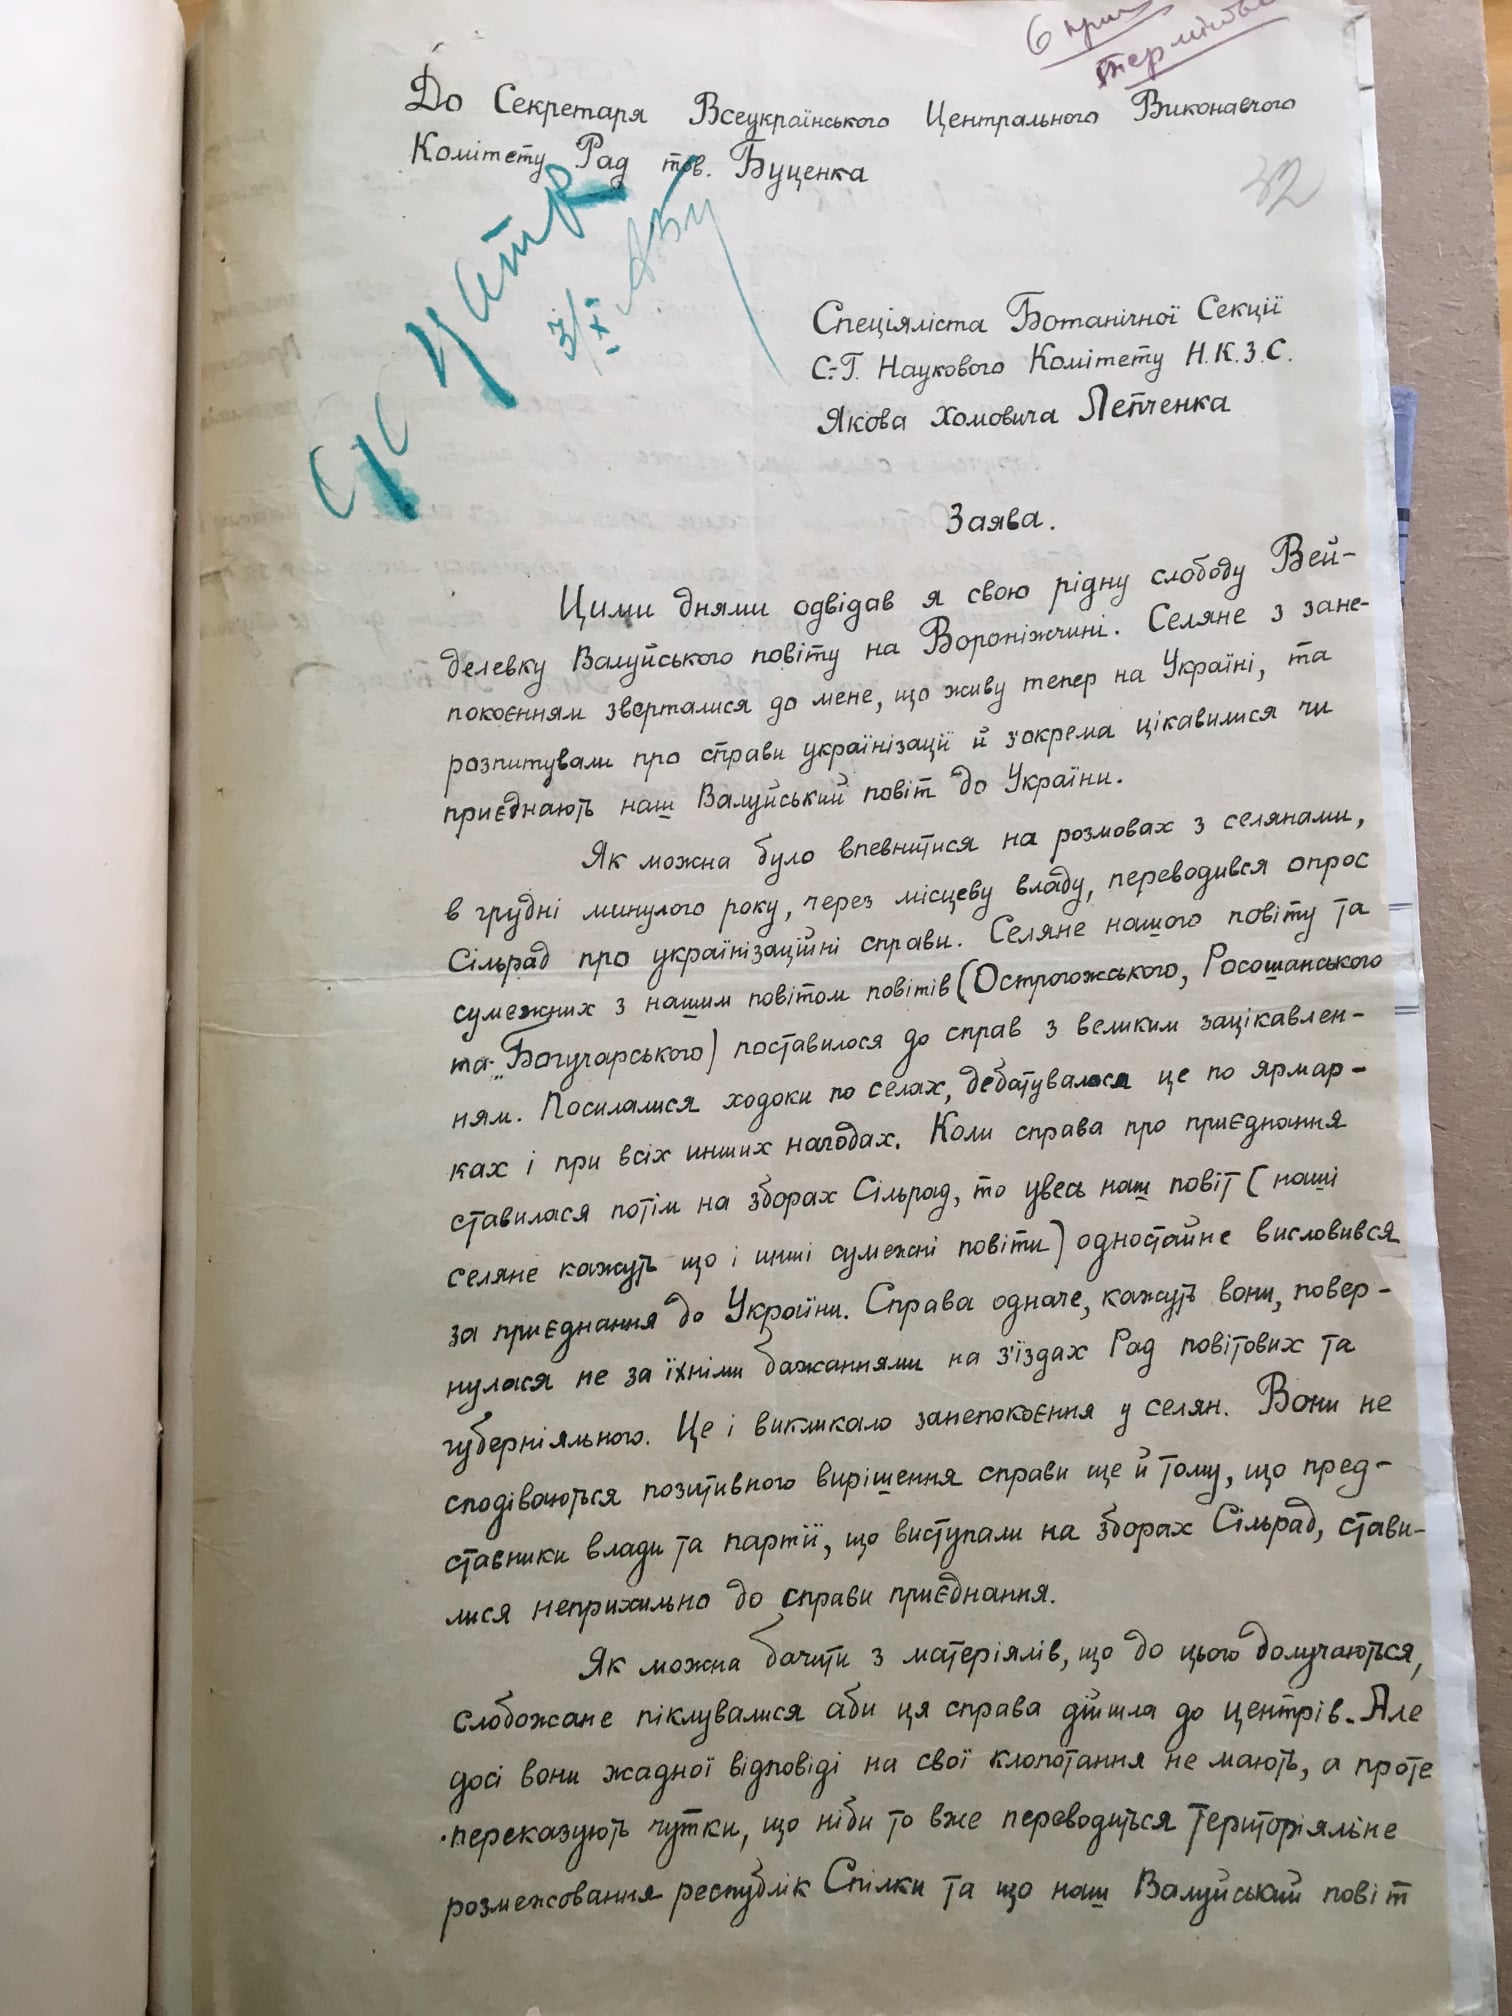 6 прим
терміново
До Секретаря Всеукраїнського Центрального Виконавчого
Комітету Рад тов. Буценка
32
3/X
Спеціяліста Ботанічної Секції
С.-Г. Наукового Комітету Н.К.З.С.
Якова Хомовича Лепченка
Заява.
Цими днями одвідав я свою рідну слободу Вей-
делевку Валуйського повіту на Вороніжчині. Селяне з зане-
покоєнням зверталися до мене, що живу тепер на Україні, та
розпитували про справи українізації й з'окрема цікавилися чи
приєднають наш Валуйський повіт до України.
Як можна було впевнитися на розмовах з селянами,
в грудні минулого року, через місцеву владу, переводився опрос
Сільрад про українізаційні справи. Селяне нашого повіту та
сумежних з нашим повітом повітів (Острогожського, Росошанського
та Богучарського) поставилося до справ з великим зацікавлен-
ням. Посилалися ходоки по селах, дебатувалося це по ярмар-
ках і при всіх инших нагодах. Коли справа про приєднання
ставилася потім на зборах Сільрад, то увесь наш повіт (наші
селяне кажуть що і инші сумежні повіти) одностайне висловився
за приєднання до України. Справа одначе, кажуть вони, повер-
нулася не за їхніми бажаннями на з'їздах Рад повітових та
губерніяльного. Це і викликало занепокоєння у селян. Вони не
сподіваються позитивного вирішення справи ще й тому, що пред-
ставники влади та партії, що виступали на зборах Сільрад, стави-
лися неприхильно до справи приєднання.
Як можна бачити з матеріялів, що до цього долучаються,
слобожане піклувалися аби ця справа дійшла до центрів. Але
досі вони жадної відповіді на свої клопотання не мають, а проте
переказують чутки, що ніби то вже переводиться територіяльне
розмежовання республік Спілки та що наш Валуйський повіт